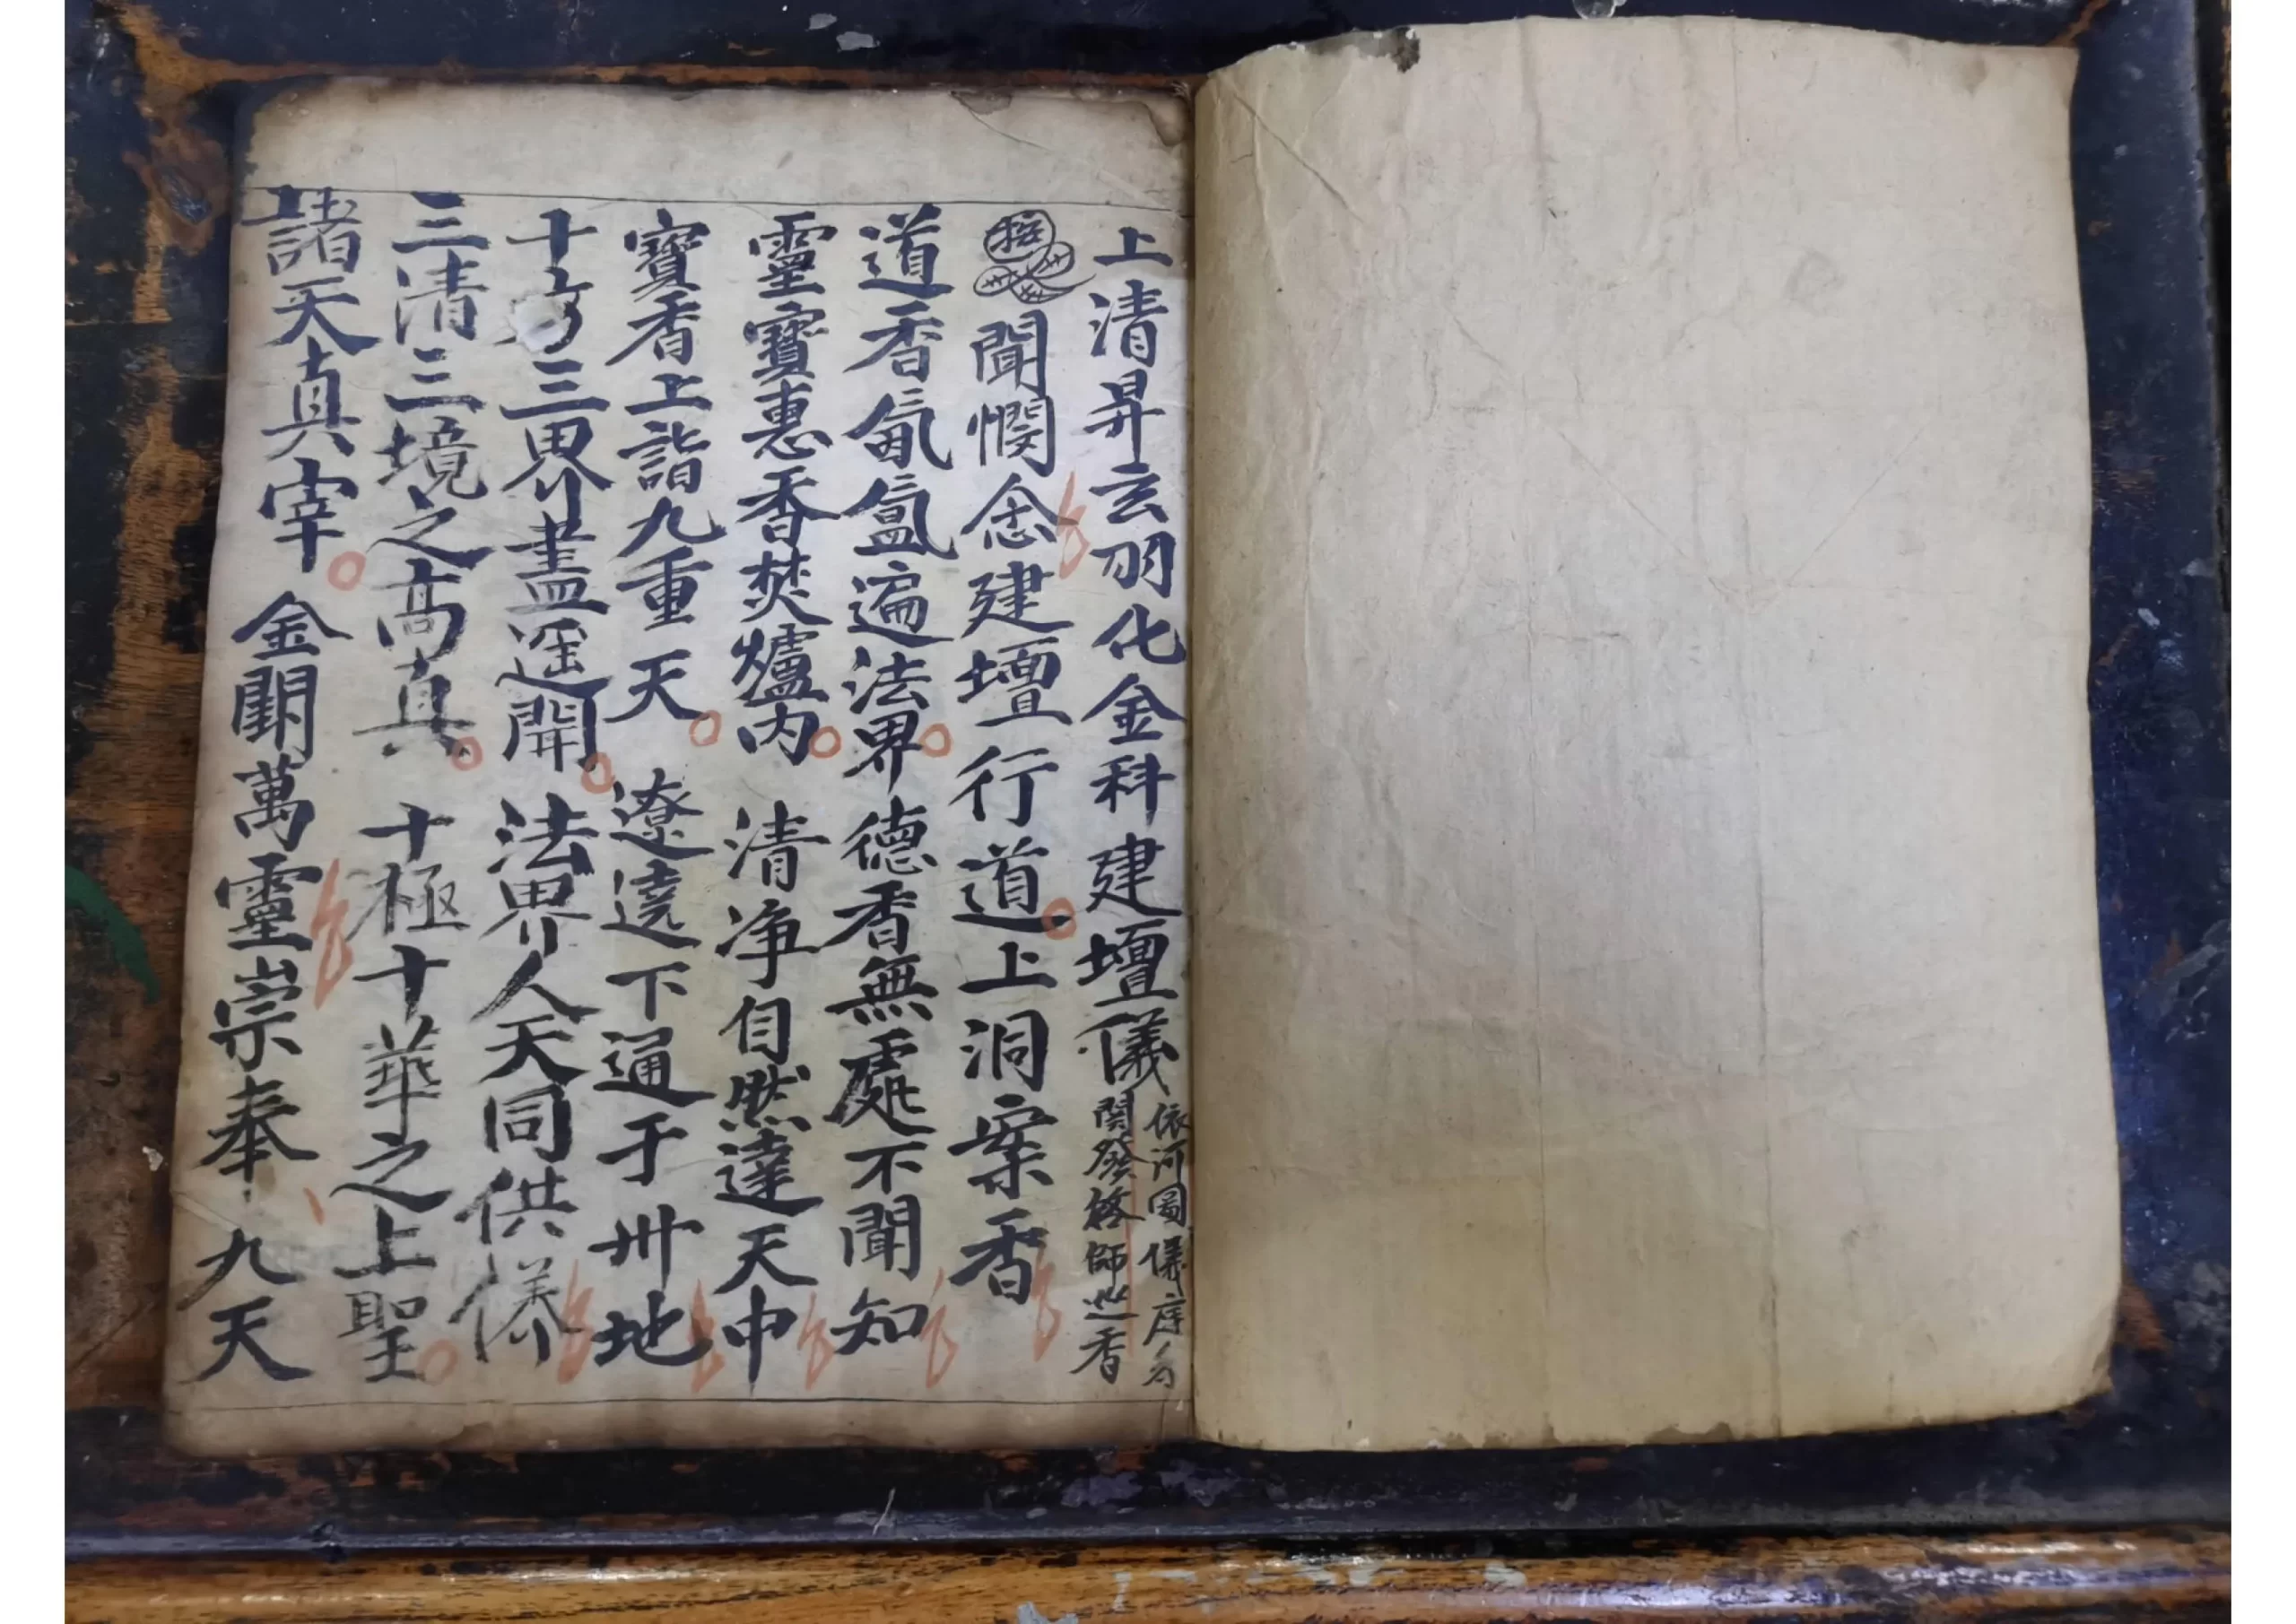 上清昇玄羽化金科建壇儀
依河圖儀序
開發啓師巡香
聞憫念建壇行道上洞案香
道香氤氳遍法界德香無處不聞知
靈寶惠香焚爐內清净自然達天中
寶香上詣九重天遼遶下通于卅地
十方三界盡遥開法界人天同供
三清三境之高真十極十華之上聖
諸天真宰金闕萬靈崇奉九天